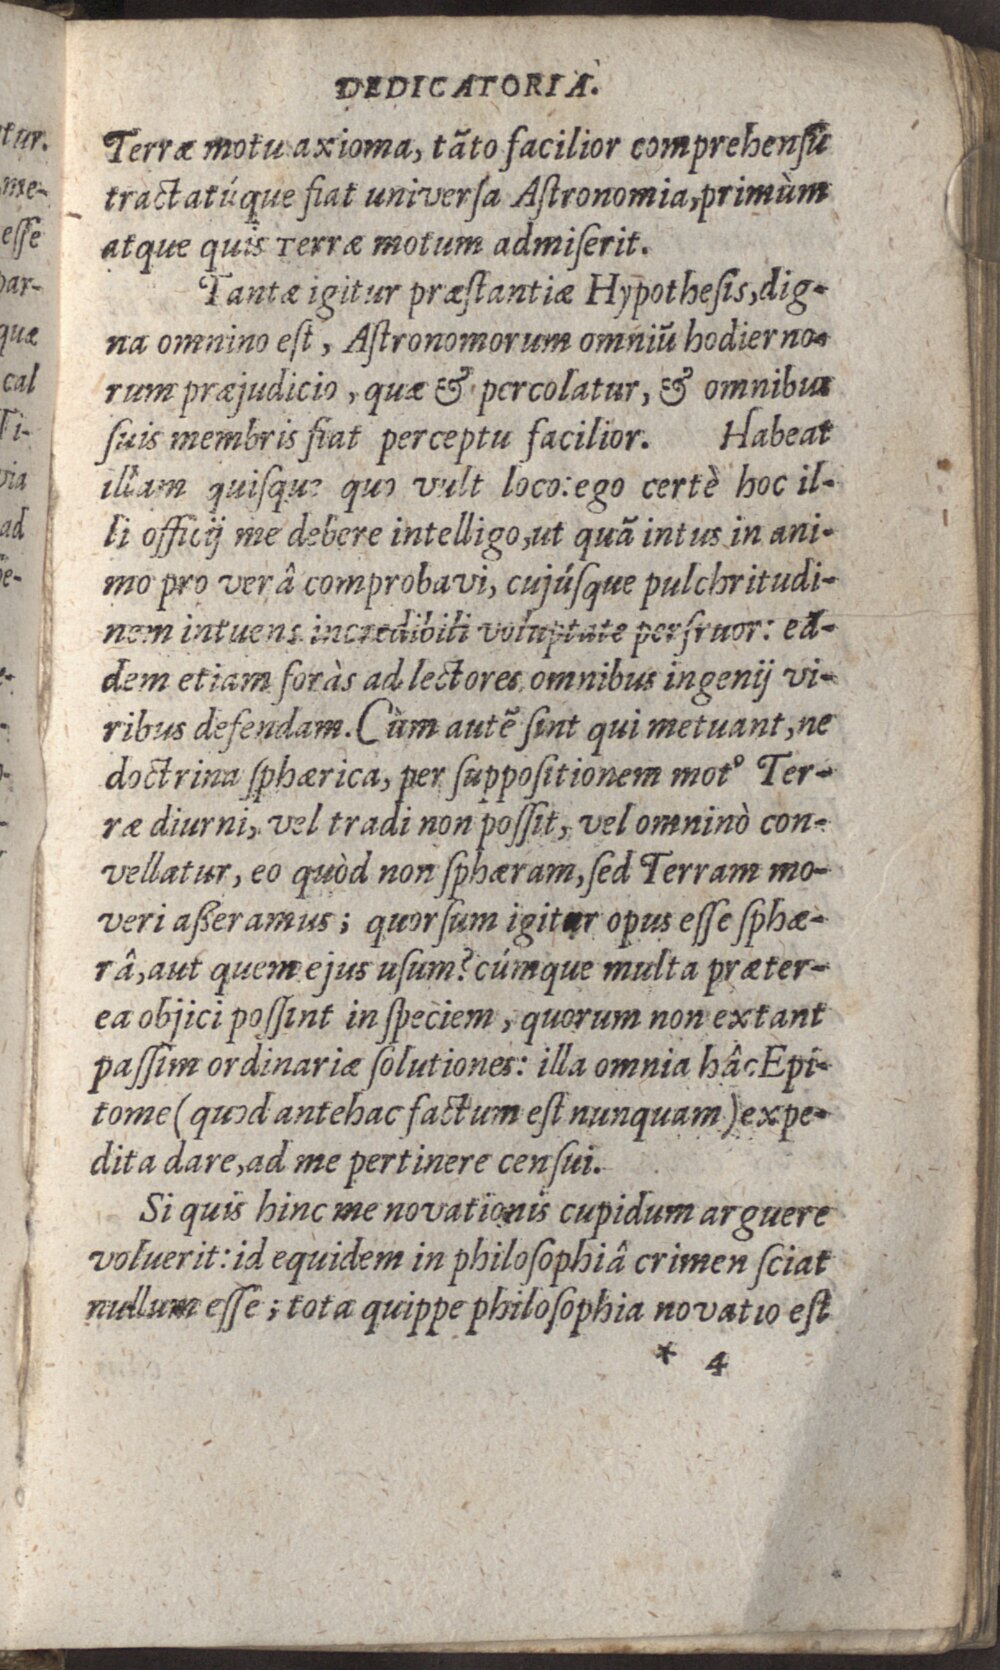 DEDICATORIA.
Terræ motu axioma, tãto facilior comprehensu
tractatúque fiat universa Astronomia, primùm
atque quis Terræ motum admiserit.
Tantæ igitur præstantiæ Hypothesis, dig-
na omnino est, Astronomorum omniũ hodierno-
rum præjudicio, quæ & percolatur, & omnibus
suis membris fiat perceptu facilior. Habeat
illam quisque quo vult loco: ego certè hoc il-
li officij me debere intelligo, ut quã intus in ani-
mo pro verâ comprobavi, cujúsque pulchritudi-
nem intuens incredibili voluptate perfruor: eã-
dem etiam foràs ad lectores omnibus ingenij vi-
ribus defendam. Cùm autẽ sint qui metuant, ne
doctrina sphærica, per suppositionem motꝰ Ter-
ræ diurni, vel tradi non possit, vel omninò con-
vellatur, eo quòd non sphæram, sed Terram mo-
veri asseramus; quorsum igitur opus esse sphæ-
râ, aut quem ejus usum? cúmque multa præter-
ea objici possint in speciem, quorum non extant
passim ordinariæ solutiones: illa omnia hâc Epi-
tome (quod antehac factum est nunquam) expe-
dita dare, ad me pertinere censui.
Si quis hinc me novationis cupidum arguere
voluerit: id equidem in philosophiâ crimen sciat
nullum esse; tota quippe philosophia novatio est
* 4
tur.
me-
esse
par-
quæ
cal
via
ad